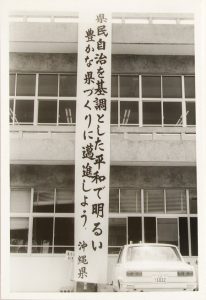 県民自治を基調とした平和で明るい
豊かな県づくりに邁進しよう。
沖縄県